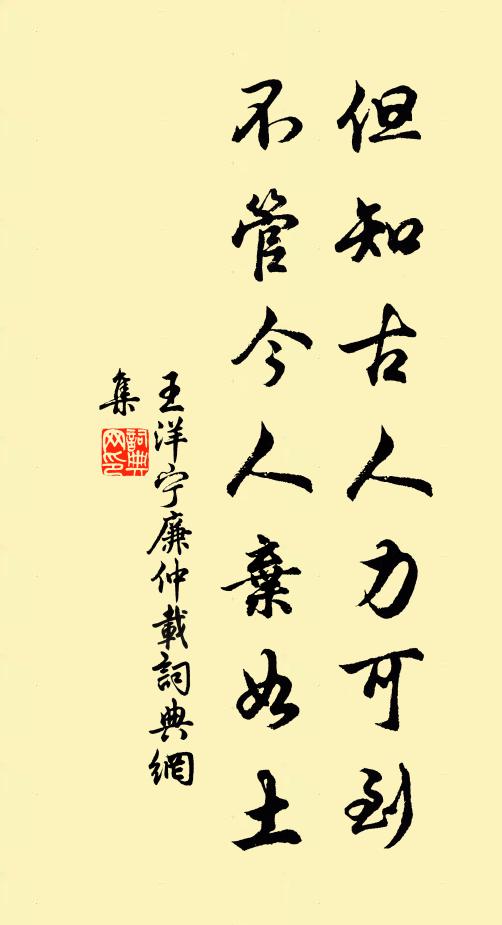 但知古人力可到
不管今人棄如土
王洋宁廉仲載詞典網
集
詞典网印